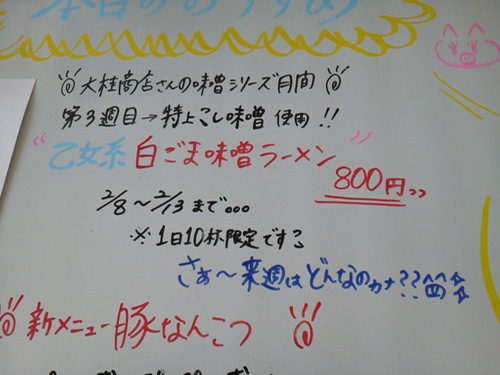 本日のおすすめ
大桂商店さんの味噌シリーズ月間
第3週目→特上こし味噌 使用!!
"乙女系 白ごま味噌ラーメン"
800円
2/8〜2/13まで...
※1日10杯限定です
さぁ〜来週はどんなのカナ??
新メニュー豚なんこつ